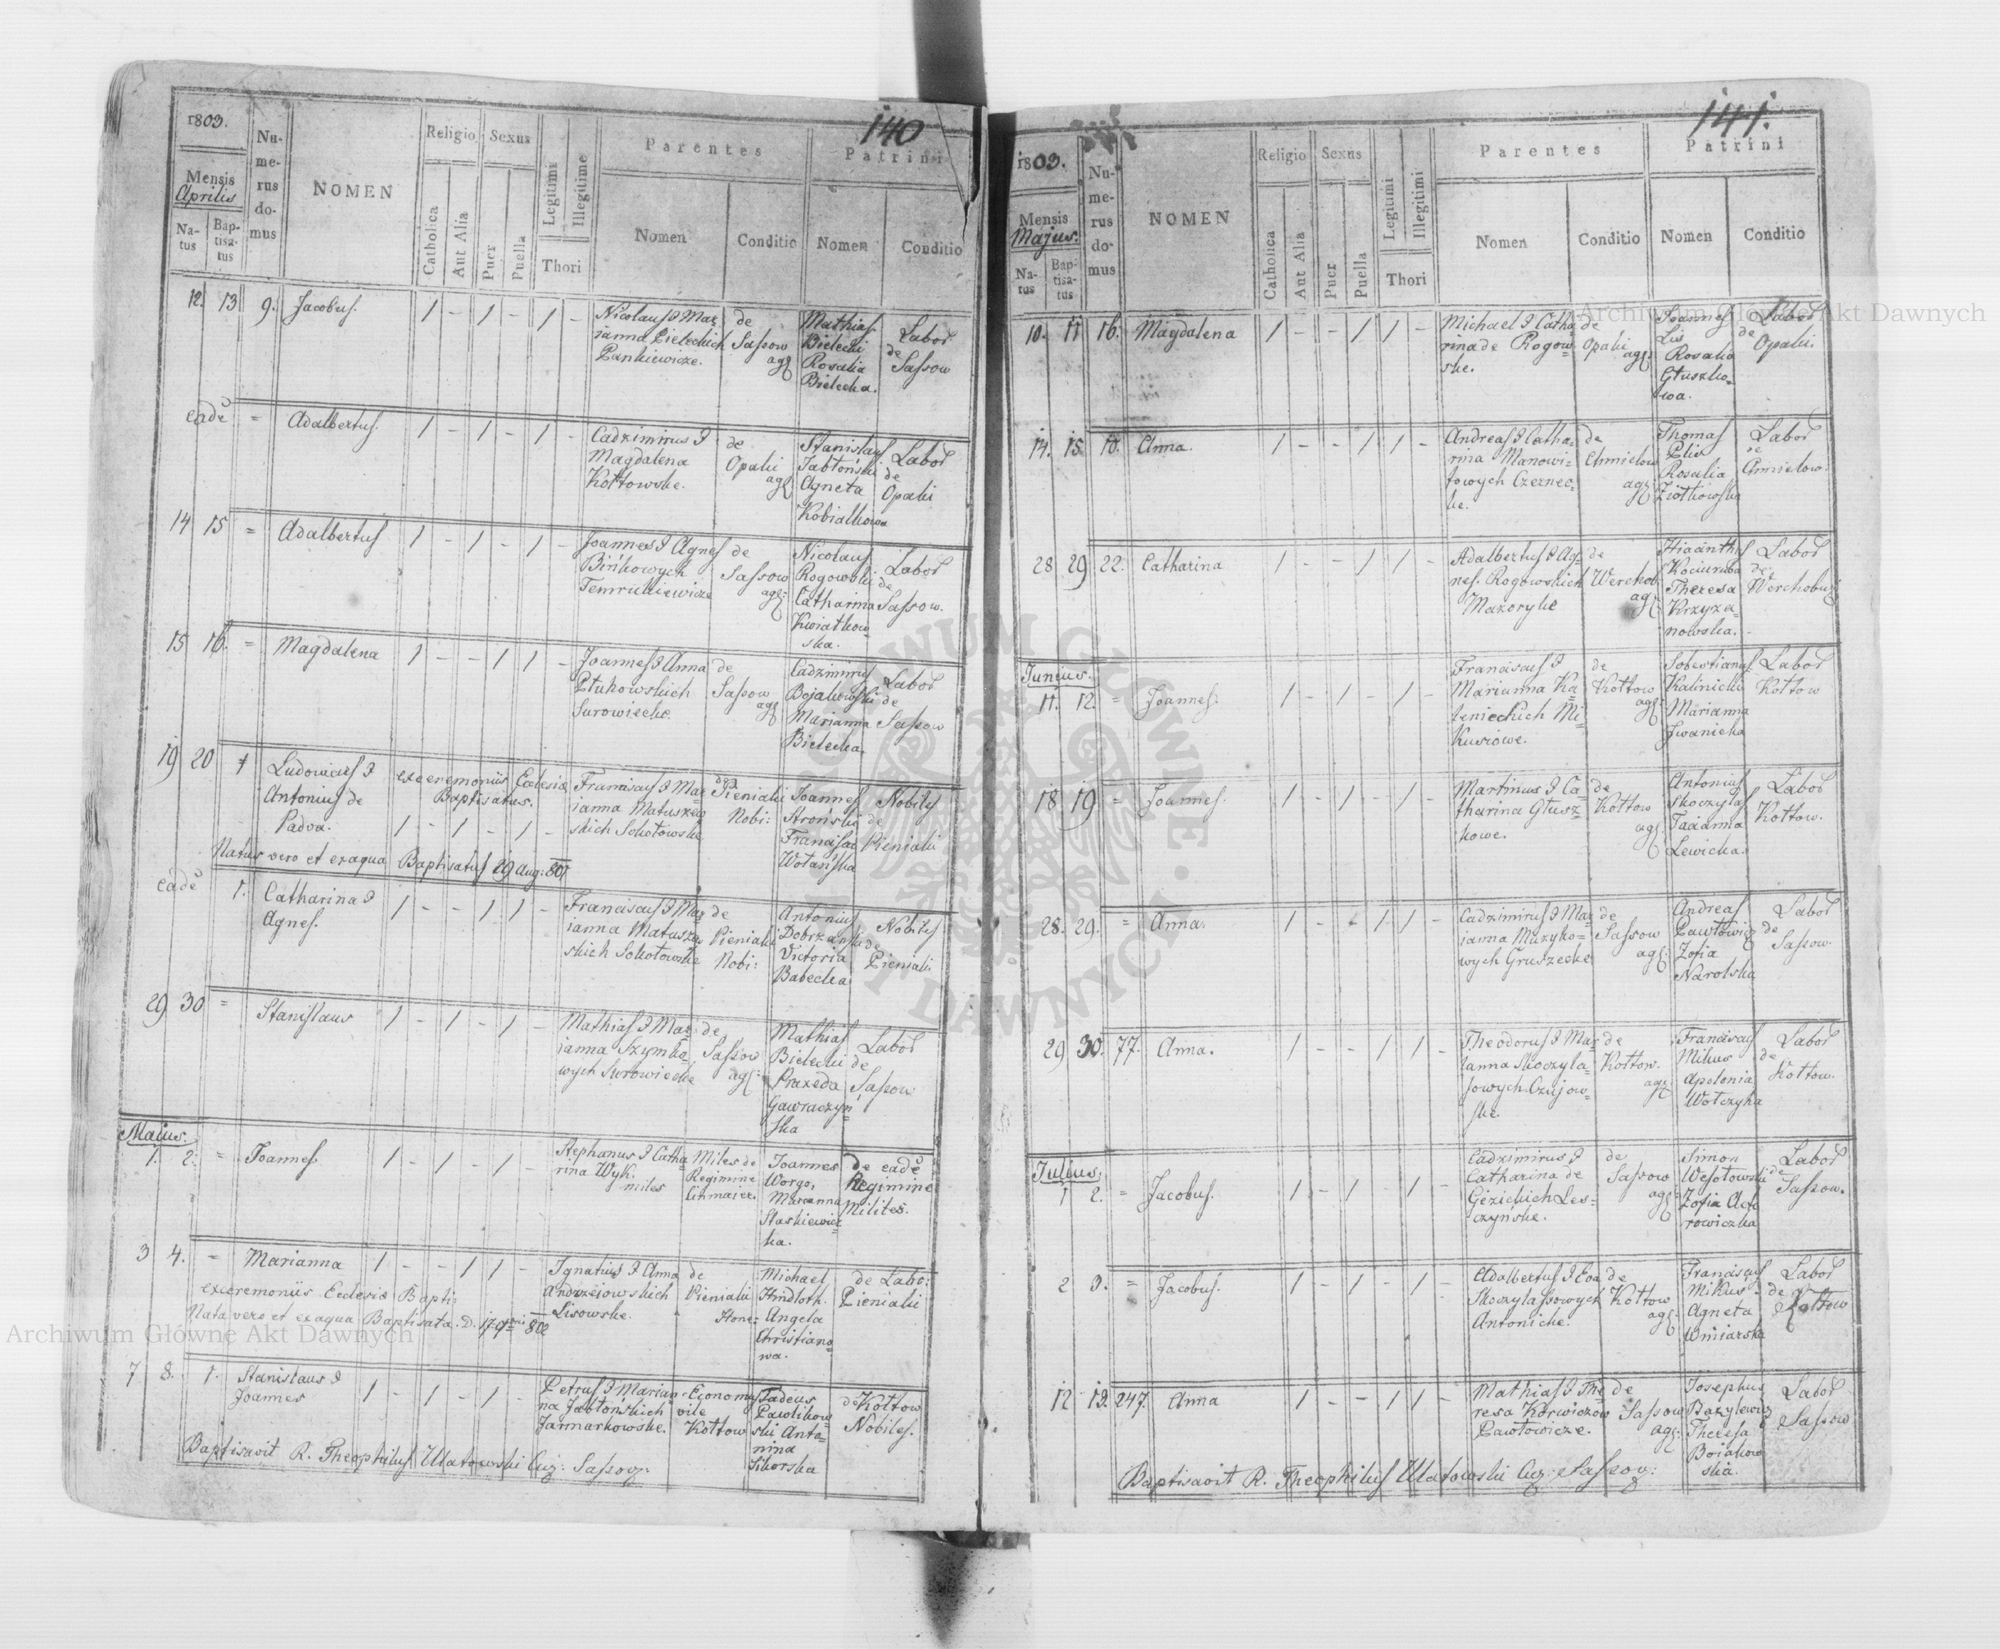 140
1803.
Mensis
Aprilis
Natus
Baptisatus
Numerus domus
NOMEN
Religio
Catholica
Aut Alia
Sexus
Puer
Puella
Legitimi
Illegitime
Thori
Parentes
Nomen
Conditio
Patrini
Nomen
Conditio
12. 13 9. Jacobus. 1 - 1 - 1 -
Nicolaus & Mar
ianna Bieleckich
Pankiewicze.
de
Sassow
agl
Mathias
Bielecki
Rosalia
Bielecka.
Labor
de
Sassow
eade = Adalbertus. 1 - 1 - 1 -
Cadzimirus &
Magdalena
Kottowske.
de
Opaki
agl
Stanislaus
Jabłonski
Agneta
Kobialkowa
Labor
de
Opaki
14 15 = Adalbertus 1 - 1 - 1 -
Joannes & Agnes
Bińkowych
de
Sassow
agl:
Nicolaus
Rogowski
Catharina
Kwiatkow=
ska.
Labor
de
Sassow.
15 16. = Magdalena 1 - - 1 1 -
Joannes & Anna
Płukowskich
Surowiecke.
de
Sassow
agl
Cadzimirus
Bojakowski
Marianna
Bielecka.
Labor
de
Sassow
19 20 + Ludovicus &
Antonius de
Padva.
exceremoniis Ecclesiæ
Baptisatus.
1 - 1 - 1 -
Franciscus & Mar
ianna Matuszew
skich Sokołowske
Pieniaki
Nobi:
Joannes
Stronski
Francisca
Wolańska
Nobiles
de
Pieniaki
Natus vero et exaqua Baptisatus 29 Aug: 801
eade 1. Catharina &
Agnes. 1 - - 1 1 -
Franciscus & Mar
ianna Matuszew
skich Sokołowske
de
Pieniaki
Nobi:
Antonius
Dobrzanski
Victoria
Babecka
Nobiles
de
Pieniaki
29 30 = Stanislaus 1 - 1 - 1 -
Mathias & Mar=
ianna Szymko
wych Surowiecke
de
Sassow
agl:
Mathias
Bielecki
Praxeda
Gawraczyn
ska
Labor
de
Sassow
Majus.
1. 2. = Joannes 1 - 1 - 1 -
Stephanus & Catha
rina Wyk.
miles
Miles de
Regimine
Joannes
Worgo,
Marianna
Staskiewicz
ka.
de eade
Regimine
Milites.
3 4. = Marianna 1 - - 1 1 -
exceremoniis Ecclesiæ Bapti=
Nata vero et exaqua Baptisata. D. 17 9bris 802
Ignatius & Anna
Andrzejowskich
Lisowske.
de
Pieniaki
Hone=
Michael
Hindloth.
Angela
Christiano=
wa.
de Labo:
Pieniaki
7 8. 1. Stanislaus &
Joannes 1 - 1 - 1 -
Petrus & Marian
na Jabłonskich
Jarmarkowske.
Economus
vile
Kołtow
Tadeus
Pawlikow
ski Anto=
nina
Sikorska
de Kołtow
Nobiles.
Baptisavit R. Theophilus Ulatowski Cur: Sassov:
141.
1803.
Mensis
Majus.
Natus
Baptisatus
Numerus domus
NOMEN
Religio
Catholica
Aut Alia
Sexus
Puer
Puella
Legitimi
Illegitimi
Thori
Parentes
Nomen
Conditio
Patrini
Nomen
Conditio
10. 11 16. Magdalena 1 - - 1 1 -
Michael & Catha
rina de Rogow=
ske.
de
Opaki
agl:
Joannes
Lis
Rosalia
Głuszko=
wa.
Labor
de
Opaki.
14. 15 10. Anna. 1 - - 1 1 -
Andreas & Catha=
rina Manowi=
towych Czernec=
ke.
de
Chmielow
agl
Thomas
Plis
Rosalia
Ziołkowska
Labor
de
Chmielow.
28 29 22. Catharina 1 - - 1 1 -
Adalbertus & Ag=
nes. Rogowskich
Mazoryke
de
Werchob.
agl:
Hiacinthus
Kociuruba
Theresa
Krzyza=
nowska.
Labor
de
Werchobuz
Junius.
11. 12. = Joannes. 1 - 1 - 1 -
Franciscus &
Marianna Ka=
leniеckich Mi=
kusiowe.
de
Kołtow
agl:
Sobestianus
Kalinicki
Marianna
Iwanicka
Labor
Kołtow
18 19 = Joannes. 1 - 1 - 1 -
Martinus & Ca=
tharina Głusz=
kowe.
de
Kołtow
agl:
Antonius
Skoczylas
Taianna
Lewicka.
Labor
Kołtow.
28. 29. = Anna. 1 - - 1 1 -
Cadzimirus & Ma=
rianna Muzyko=
wych Gruszecke
de
Sassow
agl:
Andreas
Pawłowicz
Zofia
Narolska
Labor
de
Sassow.
29 30. 77. Anna. 1 - - 1 1 -
Theodorus & Mar
ianna Skoczyla=
sowych Czujow=
ske.
de
Kołtow.
agl:
Franciscus
Mikus
Apolonia
Wołczyka
Labor
de
Kołtow.
Julius.
1 2. = Jacobus. 1 - 1 - 1 -
Cadzimirus &
Catharina de
Gizickich Les=
czyńske.
de
Sassow
agl:
Simon
Wesołowski
Zofia
rowiczka
Labor
de
Sassow.
2 3. = Jacobus. 1 - 1 - 1 -
Adalbertus & Eva
Skoczylassowych
Antonicke.
de
Kołtow
agl:
Franciscus
Mikus
Agneta
Winiarska
Labor
de
Kołtow
12 13. 247. Anna 1 - - 1 1 -
Mathias & The
resa Korwiczow
Pawłowicze.
de
Sassow
agl:
Josephus
Bazylewicz
Theresa
Bojakow
ska.
Labor
Sassow
Baptisavit R. Theophilus Ulatowski Cur: Sassov:
Archiwum Główne Akt Dawnych
Archiwum Główne Akt Dawnych
ARCHIWUM GŁÓWNE · AKT DAWNYCH ·